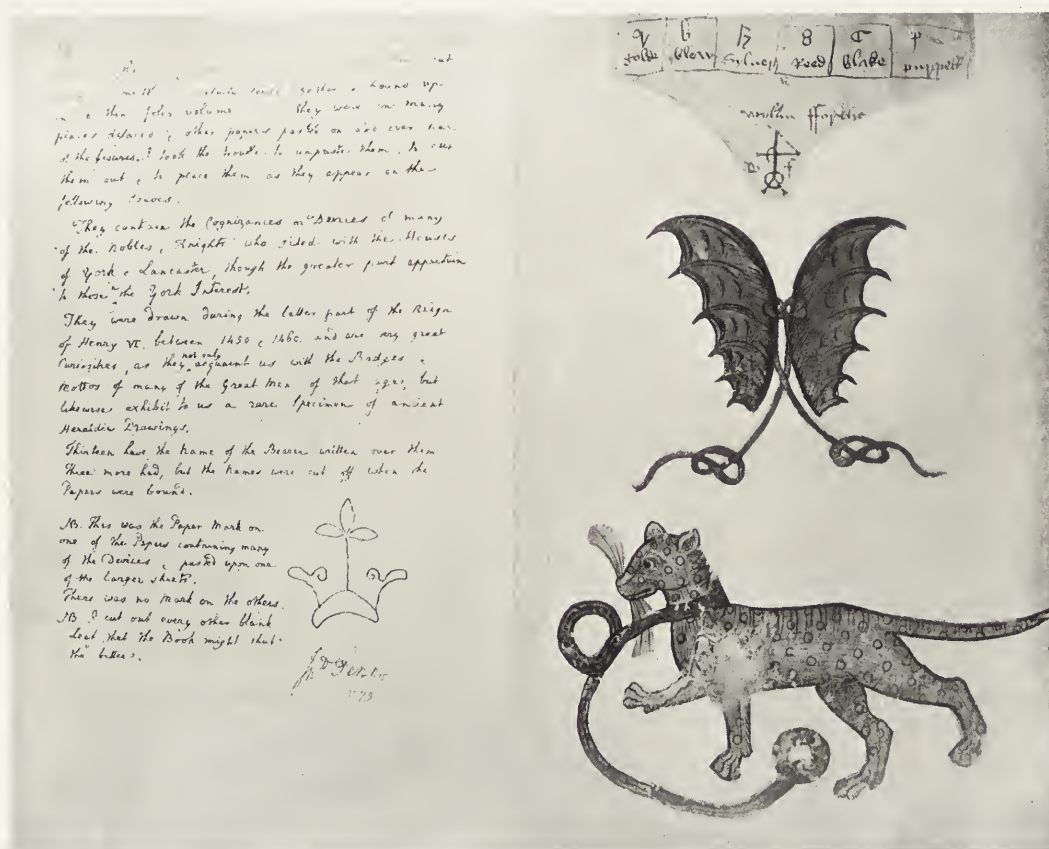 in a thin folio volume they were in many
places defaced & other papers pasted on and over some
of the figures. I took the trouble to unpaste them, to cut
them out & to place them as they appear on the
following Leaves.
They contain the Cognizances or Devices of many
of the Nobles & Knights who sided with the Houses
of York & Lancaster, though the greater part appertain
to those in the York Interest.
They were drawn during the latter part of the Reign
of Henry VI. between 1450 & 1460. and are very great
Curiosities, as they not only acquaint us with the Badges &
Mottos of many of the Great Men of that age, but
likewise exhibit to us a rare Specimen of ancient
Heraldic Drawings.
Thirteen have the Name of the Bearer written over them
Three more had, but the Names were cut off when the
Papers were bound.
NB. This was the Paper Mark on
one of the Papers containing many
of the Devices & pasted upon one
of the larger sheets.
There was no Mark on the others.
NB I cut out every other blank
Leaf that the Book might shut
the better.
Jn Fenn
q b h 8 C p
golde blew sylver Reed blake purpell